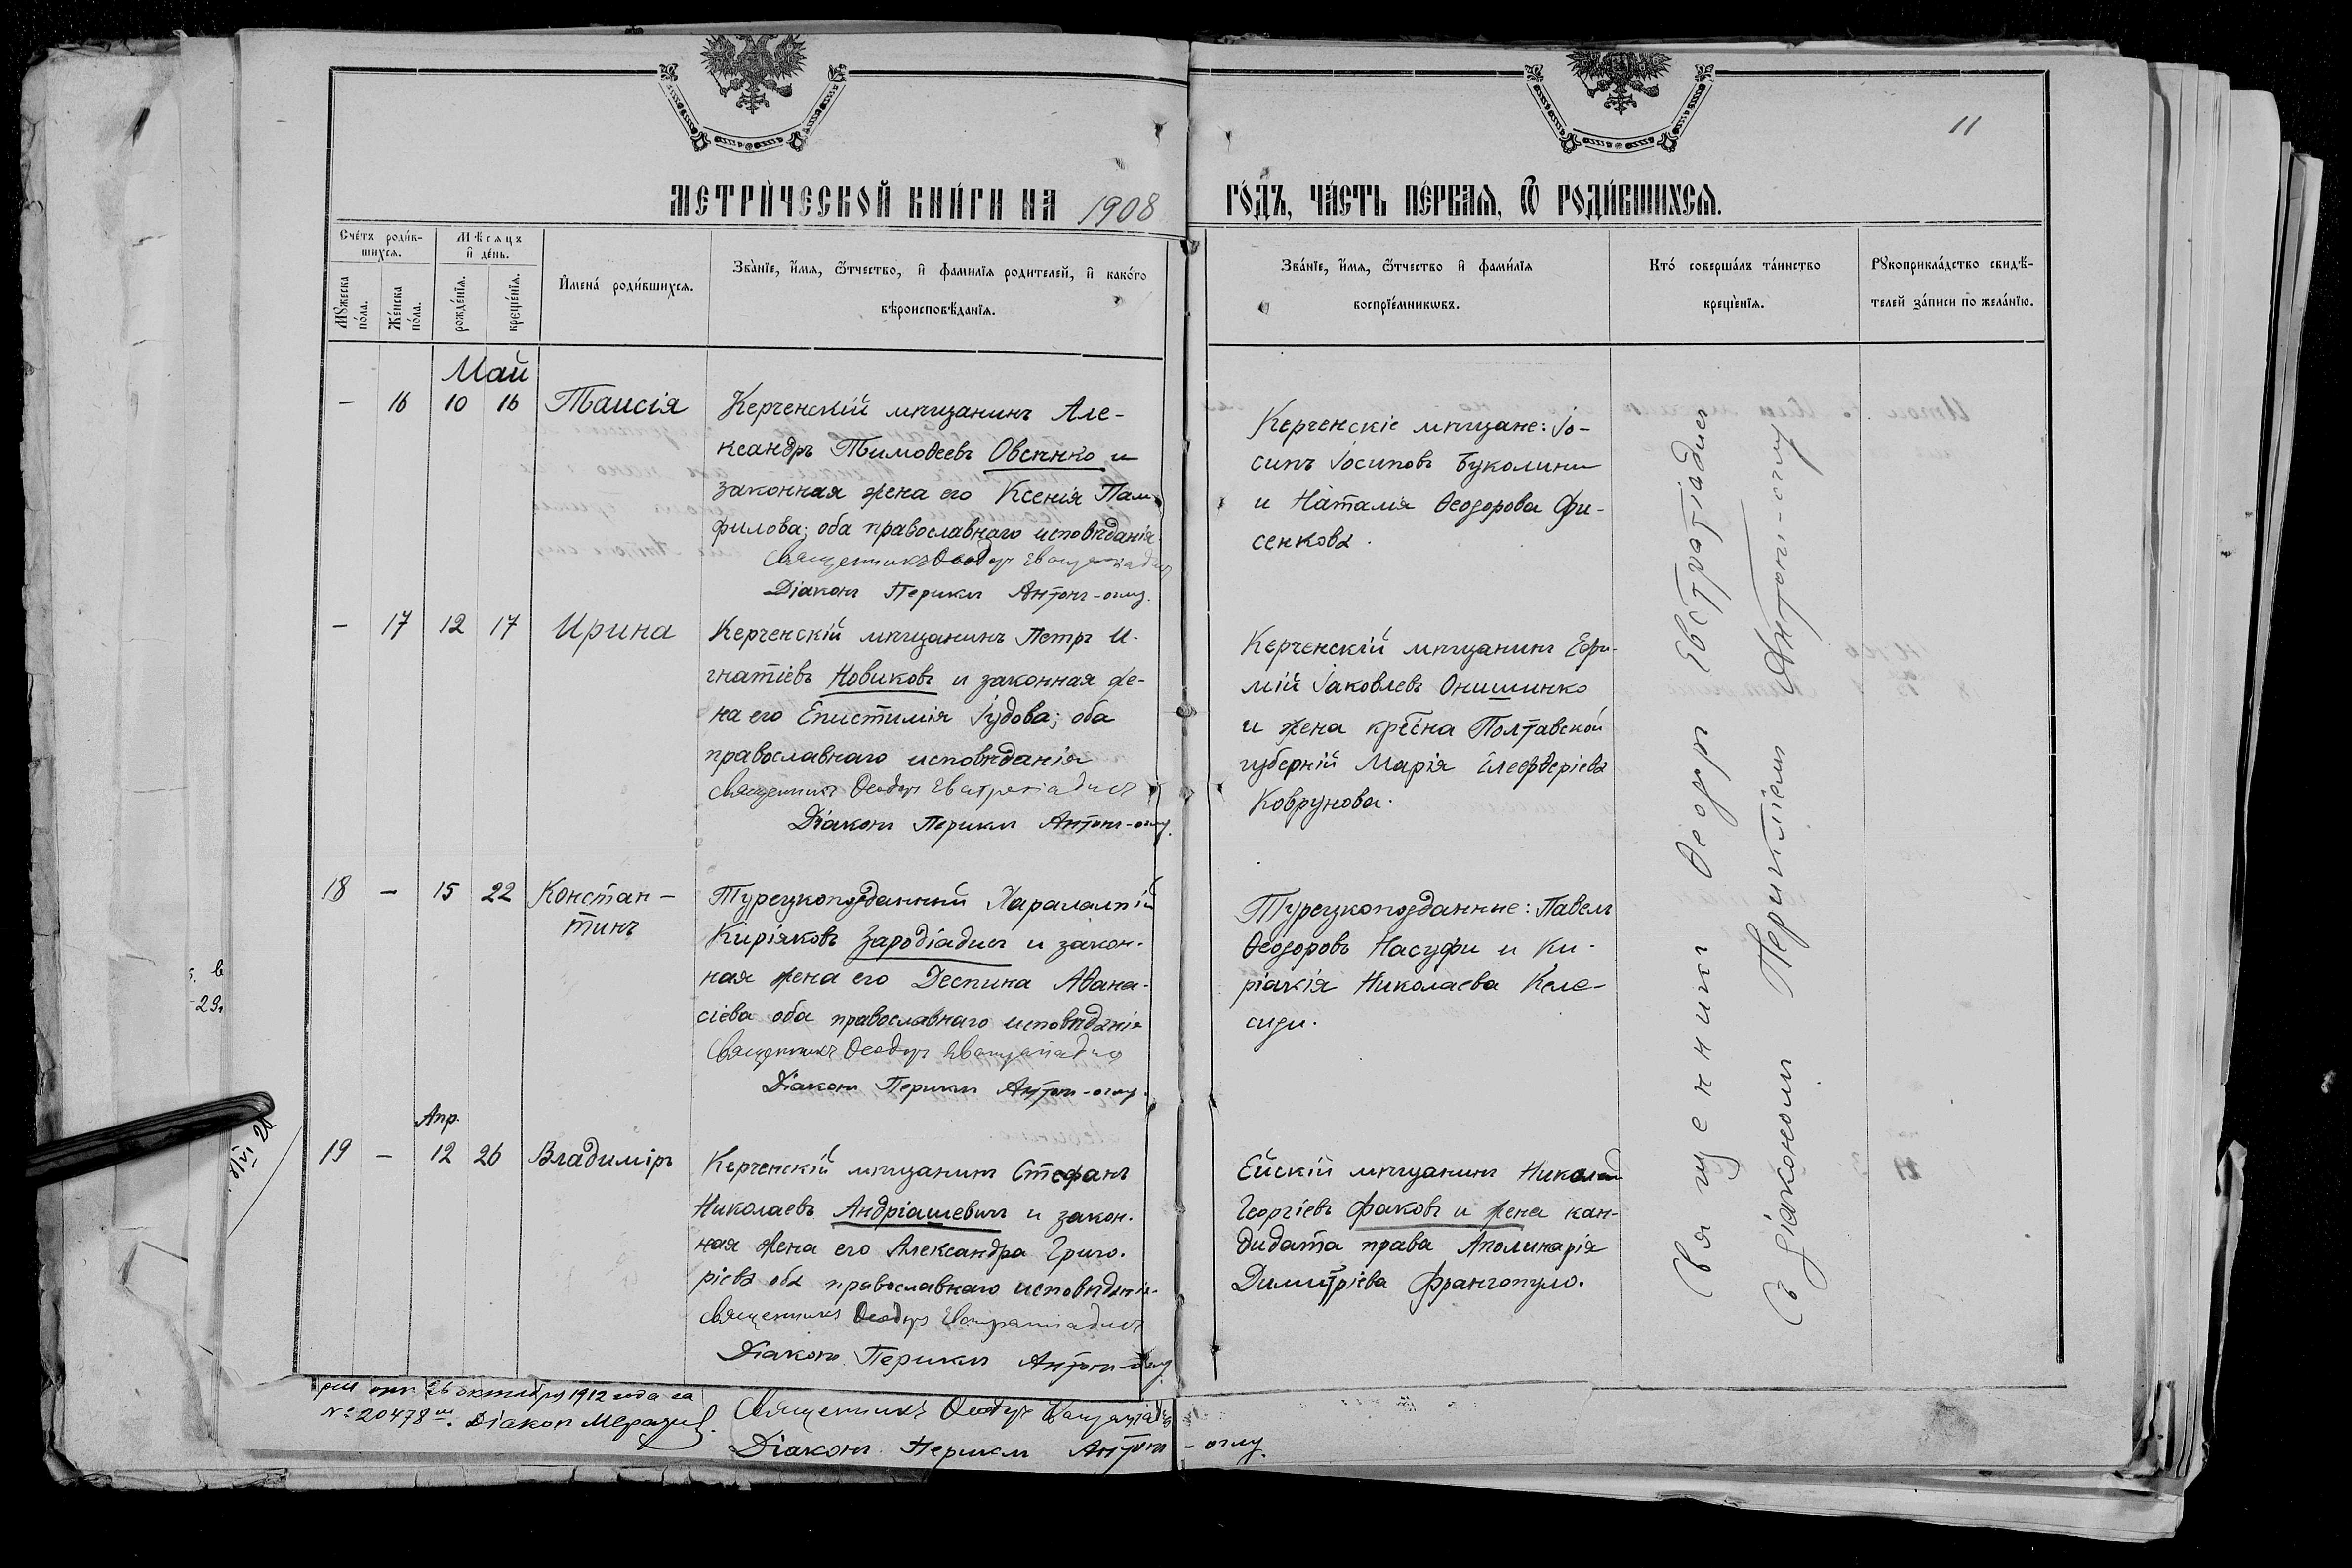 11
МЕТРИ́ЧЕСКОЙ КНИ́ГИ НА 1908 ГО́ДЪ, ЧА́СТЬ ПЕ́РВАЯ, Ѿ РОДИ́ВШИХСЯ.
Сче́тъ роди́в-
шихся.
Мѣсяцъ
и҆ де́нь.
Мꙋжеска
по́ла.
Же́нска
по́ла.
рожде́нїя.
креще́нїя.
И҆мена́ роди́вшихся.
Зва́нїе, и҆́мя, ѻ҆́тчество, и҆ фами́лїя роди́телей, и҆ како́го
вѣроисповѣ́данїя.
Зва́нїе, и҆́мя, ѻ҆́тчество и҆ фами́лїя
воспрїе́мникѡвъ.
Кто́ соверша́лъ та́инство
креще́нїя.
Рꙋкоприкла́дство свидѣ́-
телей за́писи по жела́нїю.
Май
— 16 10 16 Таисія
Керченскій мѣщанинъ Але-
ксандръ Тимоѳеевъ Овсѣнко и
законная жена его Ксенія Пам-
филова; оба православнаго исповѣданія.
Священникъ Ѳеодоръ Евстратіадисъ
Діаконъ Периклъ Антонъ-оглу.
Керченскіе мѣщане: Іо-
сипъ Іосиповъ Буколини
и Наталія Ѳеодорова Фи-
сенкова.
— 17 12 17 Ирина
Керченскій мѣщанинъ Петръ И-
гнатіевъ Новиковъ и законная же-
на его Епистимія Іудова; оба
православнаго исповѣданія
Священникъ Ѳеодоръ Евстратіадисъ
Діаконъ Периклъ Антонъ-оглу.
Керченскій мѣщанинъ Ефи-
мій Іаковлевъ Онишинко
и жена кресна Полтавской
губерній Марія Елефѳеріева
Коврунова.
18 — 15 22 Констан-
тинъ
Турецкоподданный Харалампій
Киріяковъ Зародіадисъ и закон-
ная жена его Деспина Аѳана-
сіева оба православнаго исповѣданія
Священникъ Ѳеодоръ Евстратіадисъ
Діаконъ Периклъ Антонъ-оглу.
Турецкоподданные: Павелъ
Ѳеодоровъ Насуфи и Ки-
ріакія Николаева Келе-
сиди.
Апр.
19 — 12 26 Владиміръ
Керченскій мѣщанинъ Стефанъ
Николаевъ Андріашевичъ и закон-
ная жена его Александра Григо-
ріева оба православнаго исповѣданія.
Священникъ Ѳеодоръ Евстратіадисъ
Діаконъ Периклъ Антонъ-оглу
Ейскій мѣщанинъ Николай
Георгіевъ Факовъ и жена кан-
дидата права Аполинарія
Димитріева Франгопуло.
Священникъ Ѳеодоръ Евстратіадисъ
Съ діакономъ Перикліемъ Антонъ-оглу
26 октября 1912 года за
№ 20478. Діакон
Священникъ Ѳеодоръ Евстратіадисъ
Діаконъ Периклъ Антонъ-оглу.